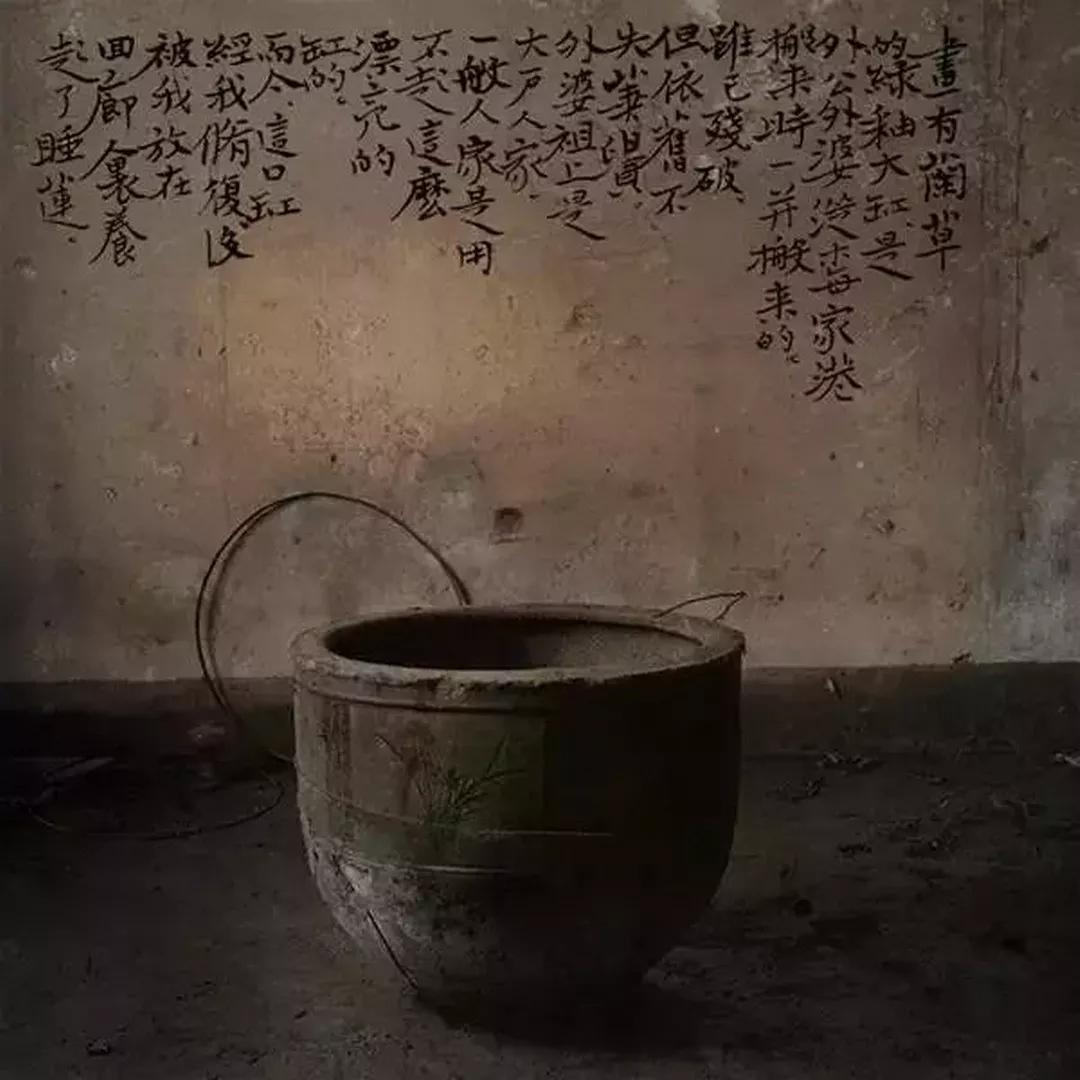 畫有蘭草
的綠釉大缸,是
外公外婆從家港
搬来時一并搬来的。
雖已殘破、
但依舊不
失華貴,
外婆祖上是
大戶人家,
一般人家是用
不起這麼
漂亮的
缸的。
而今,這口缸
經我脩復後
被我放在
回廊裏養
起了睡蓮.